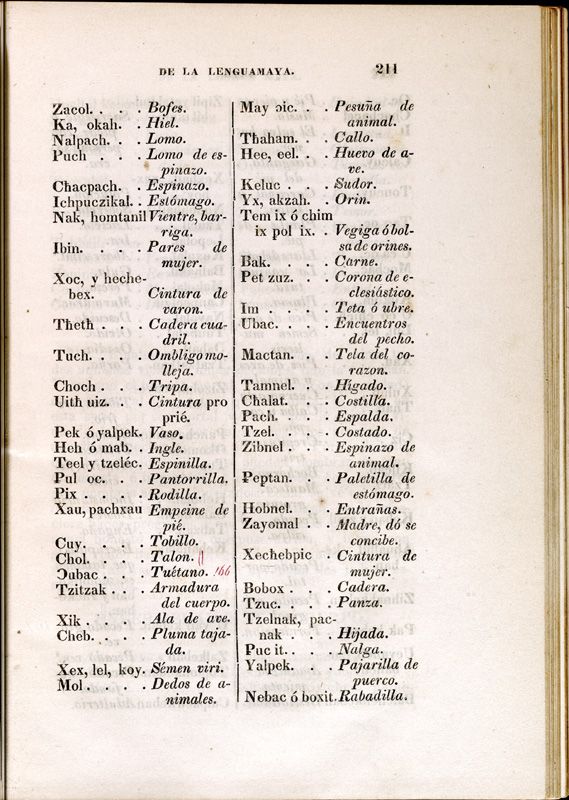 DE LA LENGUAMAYA. 211
Zacol. . . . Bofes.
Ka, okah. . . Hiel.
Nalpach. . . Lomo.
Puch . . . Lomo de es-
pinazo.
Chacpach. . Espinazo.
Ichpuczikal. . Estómago.
Nak, homtanil Vientre, bar-
riga.
Ibin. . . . . Pares de
mujer.
Xoc, y heche-
bex. Cintura de
varon.
Theth . . . Cadera cua-
dril.
Tuch. . . . Ombligo mo-
lleja.
Choch . . . Tripa.
Uith uiz. . . Cintura pro
prié.
Pek ó yalpek. Vaso.
Heh ó mab. . Ingle.
Teel y tzeléc. Espinilla.
Pul oc. . . Pantorrilla.
Pix . . . . Rodilla.
Xau, pachxau Empeine de
pié.
Cuy. . . . Tobillo.
Chol. . . . Talon.
Ɔubac . . . Tuétano. 166
Tzitzak . . . Armadura
del cuerpo.
Xik . . . . Ala de ave.
Cheb. . . . Pluma taja-
da.
Xex, lel, koy. Sémen viri.
Mol . . . . Dedos de a-
nimales.
May ɔic. . . Pesuña de
animal.
Thaham. . . Callo.
Hee, eel. . . Huevo de a-
ve.
Keluc . . . Sudor.
Yx, akzah. . . Orin.
Tem ix ó chim
ix pol ix. . . Vegiga ó bol-
sa de orines.
Bak. . . . Carne.
Pet zuz. . . Corona de e-
clesiástico.
Im . . . . Teta ó ubre.
Ubac. . . . Encuentros
del pecho.
Mactan. . . Tela del co-
razon.
Tamnel. . . Hígado.
Chalat. . . Costilla.
Pach. . . . Espalda.
Tzel. . . . Costado.
Zibnel . . . Espinazo de
animal.
Peptan. . . Paletilla de
estómago.
Hobnel. . . Entrañas.
Zayomal . . Madre, dó se
concibe.
Xechebpic . Cintura de
mujer.
Bobox . . . Cadera.
Tzuc. . . . Panza.
Tzelnak, pac-
nak . . . Hijada.
Puc it. . . . Nalga.
Yalpek. . . Pajarilla de
puerco.
Nebac ó boxit. Rabadilla.